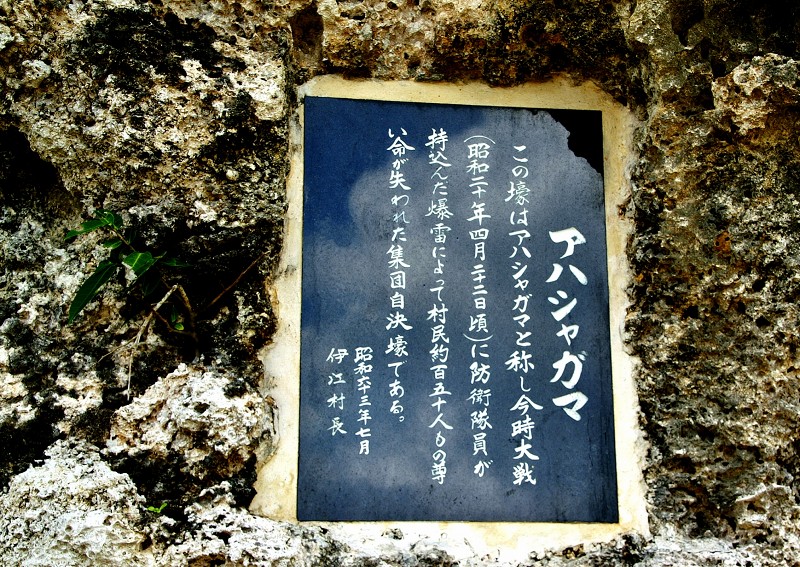 アハシャガマ
この壕はアハシャガマと称し今時大戦
(昭和二十年四月二十二日頃)に防衛隊員が
持込んだ爆雷によって村民約百五十人もの尊
い命が失われた集団自決壕である。
昭和六十三年七月
伊江村長